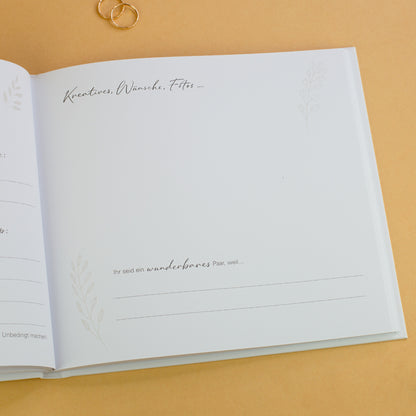 :
:
Unbedingt machen.
Kreatives, Wünsche, Fotos ...
Ihr seid ein wunderbares Paar, weil ...